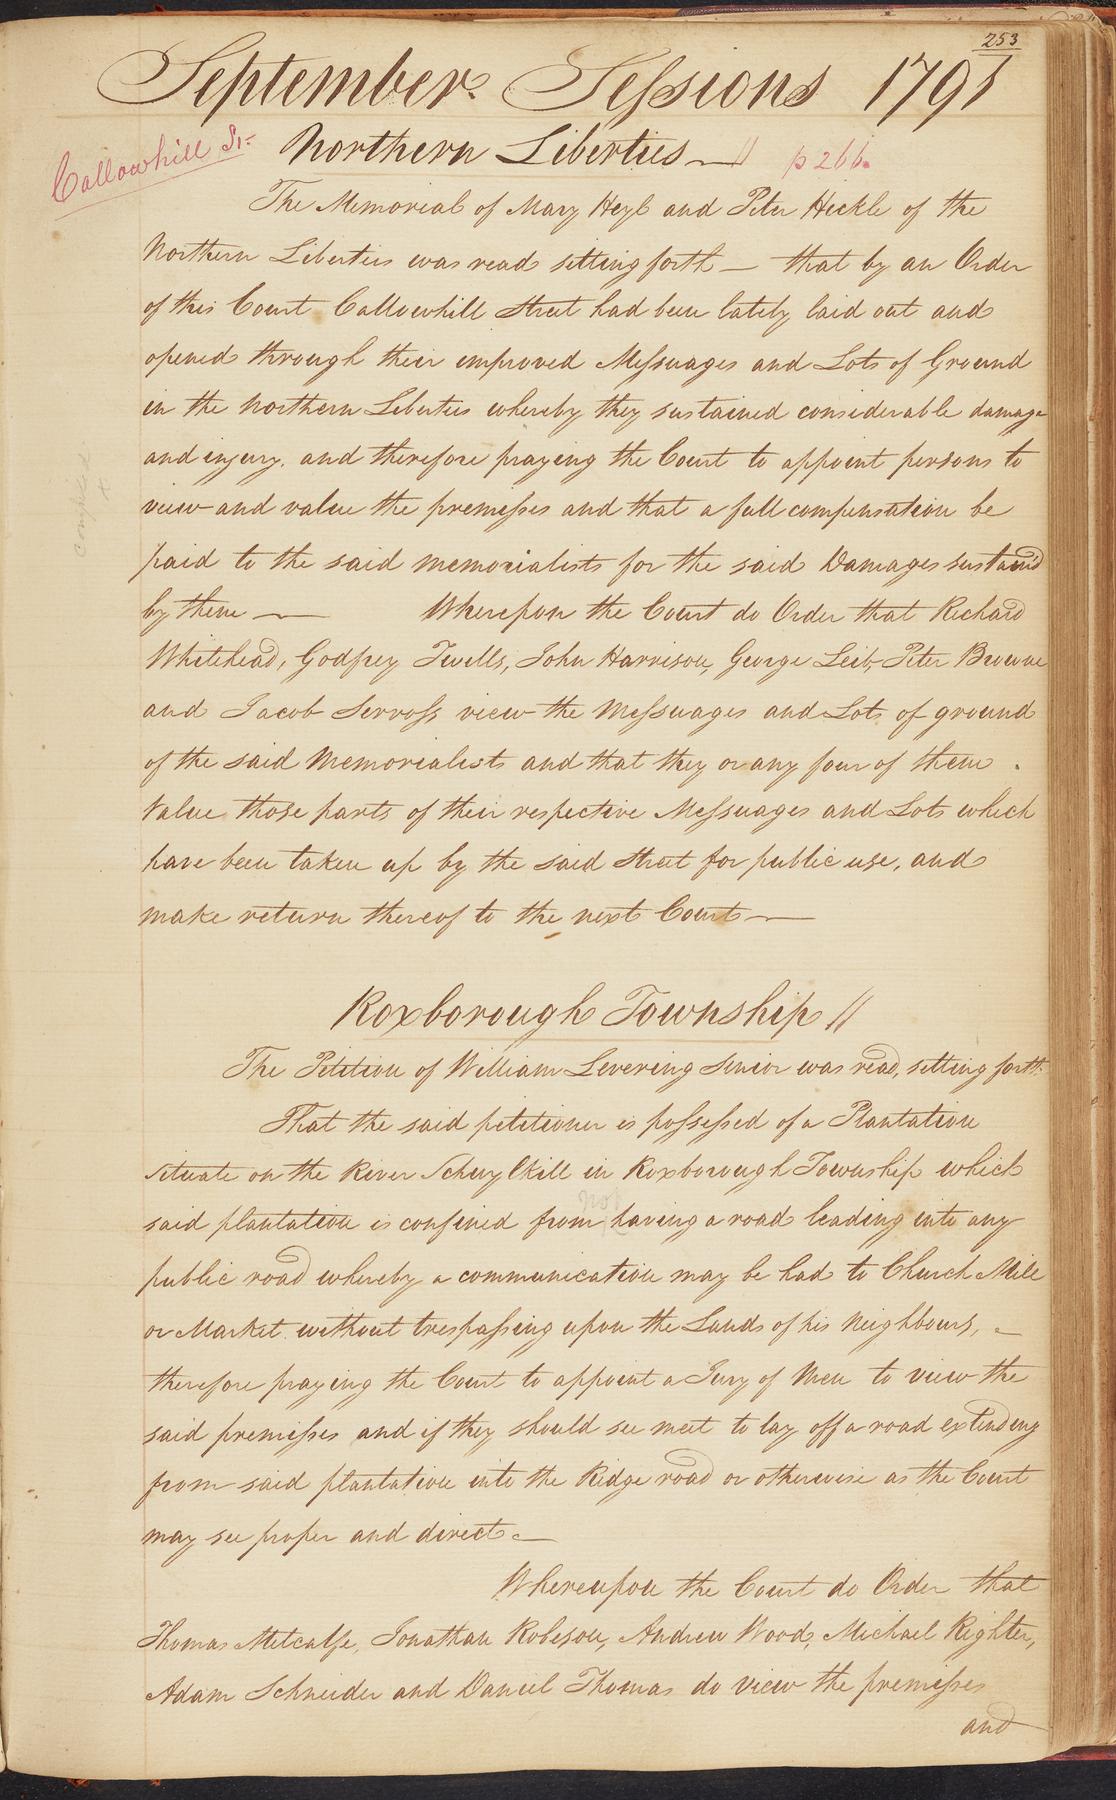 253
September Sessions 1791
Callowhill St.
Northern Liberties
p 266.
The Memorial of Mary Heyl and Peter Heckle of the
Northern Liberties was read setting forth — that by an Order
of this Court Callowhill Street had been lately laid out and
opened through their improved Messuages and Lots of Ground
in the Northern Liberties whereby they sustained considerable damage
and injury, and therefore praying the Court to appoint persons to
view and value the premisses and that a full compensation be
paid to the said memorialists for the said Damages sustaind
by them — Wherepon the Court do Order that Richard
Whitehead, Godfrey Twells, John Harrison, George Leib, Peter Browne
and Jacob Servoss view the Messuages and Lots of ground
of the said Memorialists and that they or any four of them
value those parts of their respective Messuages and Lots which
have been taken up by the said Street for public use, and
make return thereof to the next Court —
Roxborough Township //
The Petition of William Levering Senior was read, setting forth
That the said petitioner is possessed of a Plantation
situate on the River Schuylkill in Roxborough Township which
not
said plantation is confined from having a road leading into any
public road whereby a communication may be had to Church Mill
or Market without trespassing upon the Lands of his Neighbours, —
therefore praying the Court to appoint a Jury of Men to view the
said premisses and if they should see meet to lay off a road extending
from said plantation into the Ridge road or otherwise as the Court
may see proper and direct —
Whereupon the Court do Order that
Thomas Metcalfe, Jonathan Robeson, Andrew Wood, Michael Righter,
Adam Schneider and Daniel Thomas do view the premisses
and